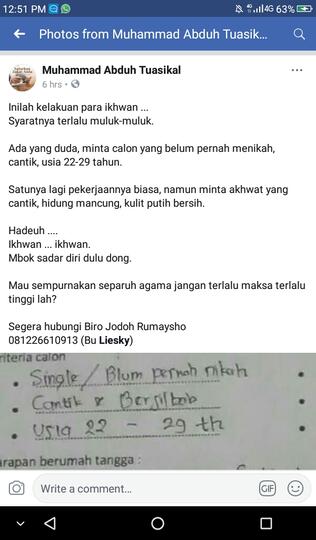 12:51 PM
4G 63%
Photos from Muhammad Abduh Tuasik...
Muhammad Abduh Tuasikal
6 hrs
Inilah kelakuan para ikhwan ...
Syaratnya terlalu muluk-muluk.
Ada yang duda, minta calon yang belum pernah menikah,
cantik, usia 22-29 tahun.
Satunya lagi pekerjaannya biasa, namun minta akhwat yang
cantik, hidung mancung, kulit putih bersih.
Hadeuh ....
Ikhwan ... ikhwan.
Mbok sadar diri dulu dong.
Mau sempurnakan separuh agama jangan terlalu maksa terlalu
tinggi lah?
Segera hubungi Biro Jodoh Rumaysho
081226610913 (Bu Liesky)
riteria calon
• Single / Blum pernah nikah
• Cantik & Berjilbab
• Usia 22 - 29 th
arapan berumah tangga :
Write a comment...
GIF